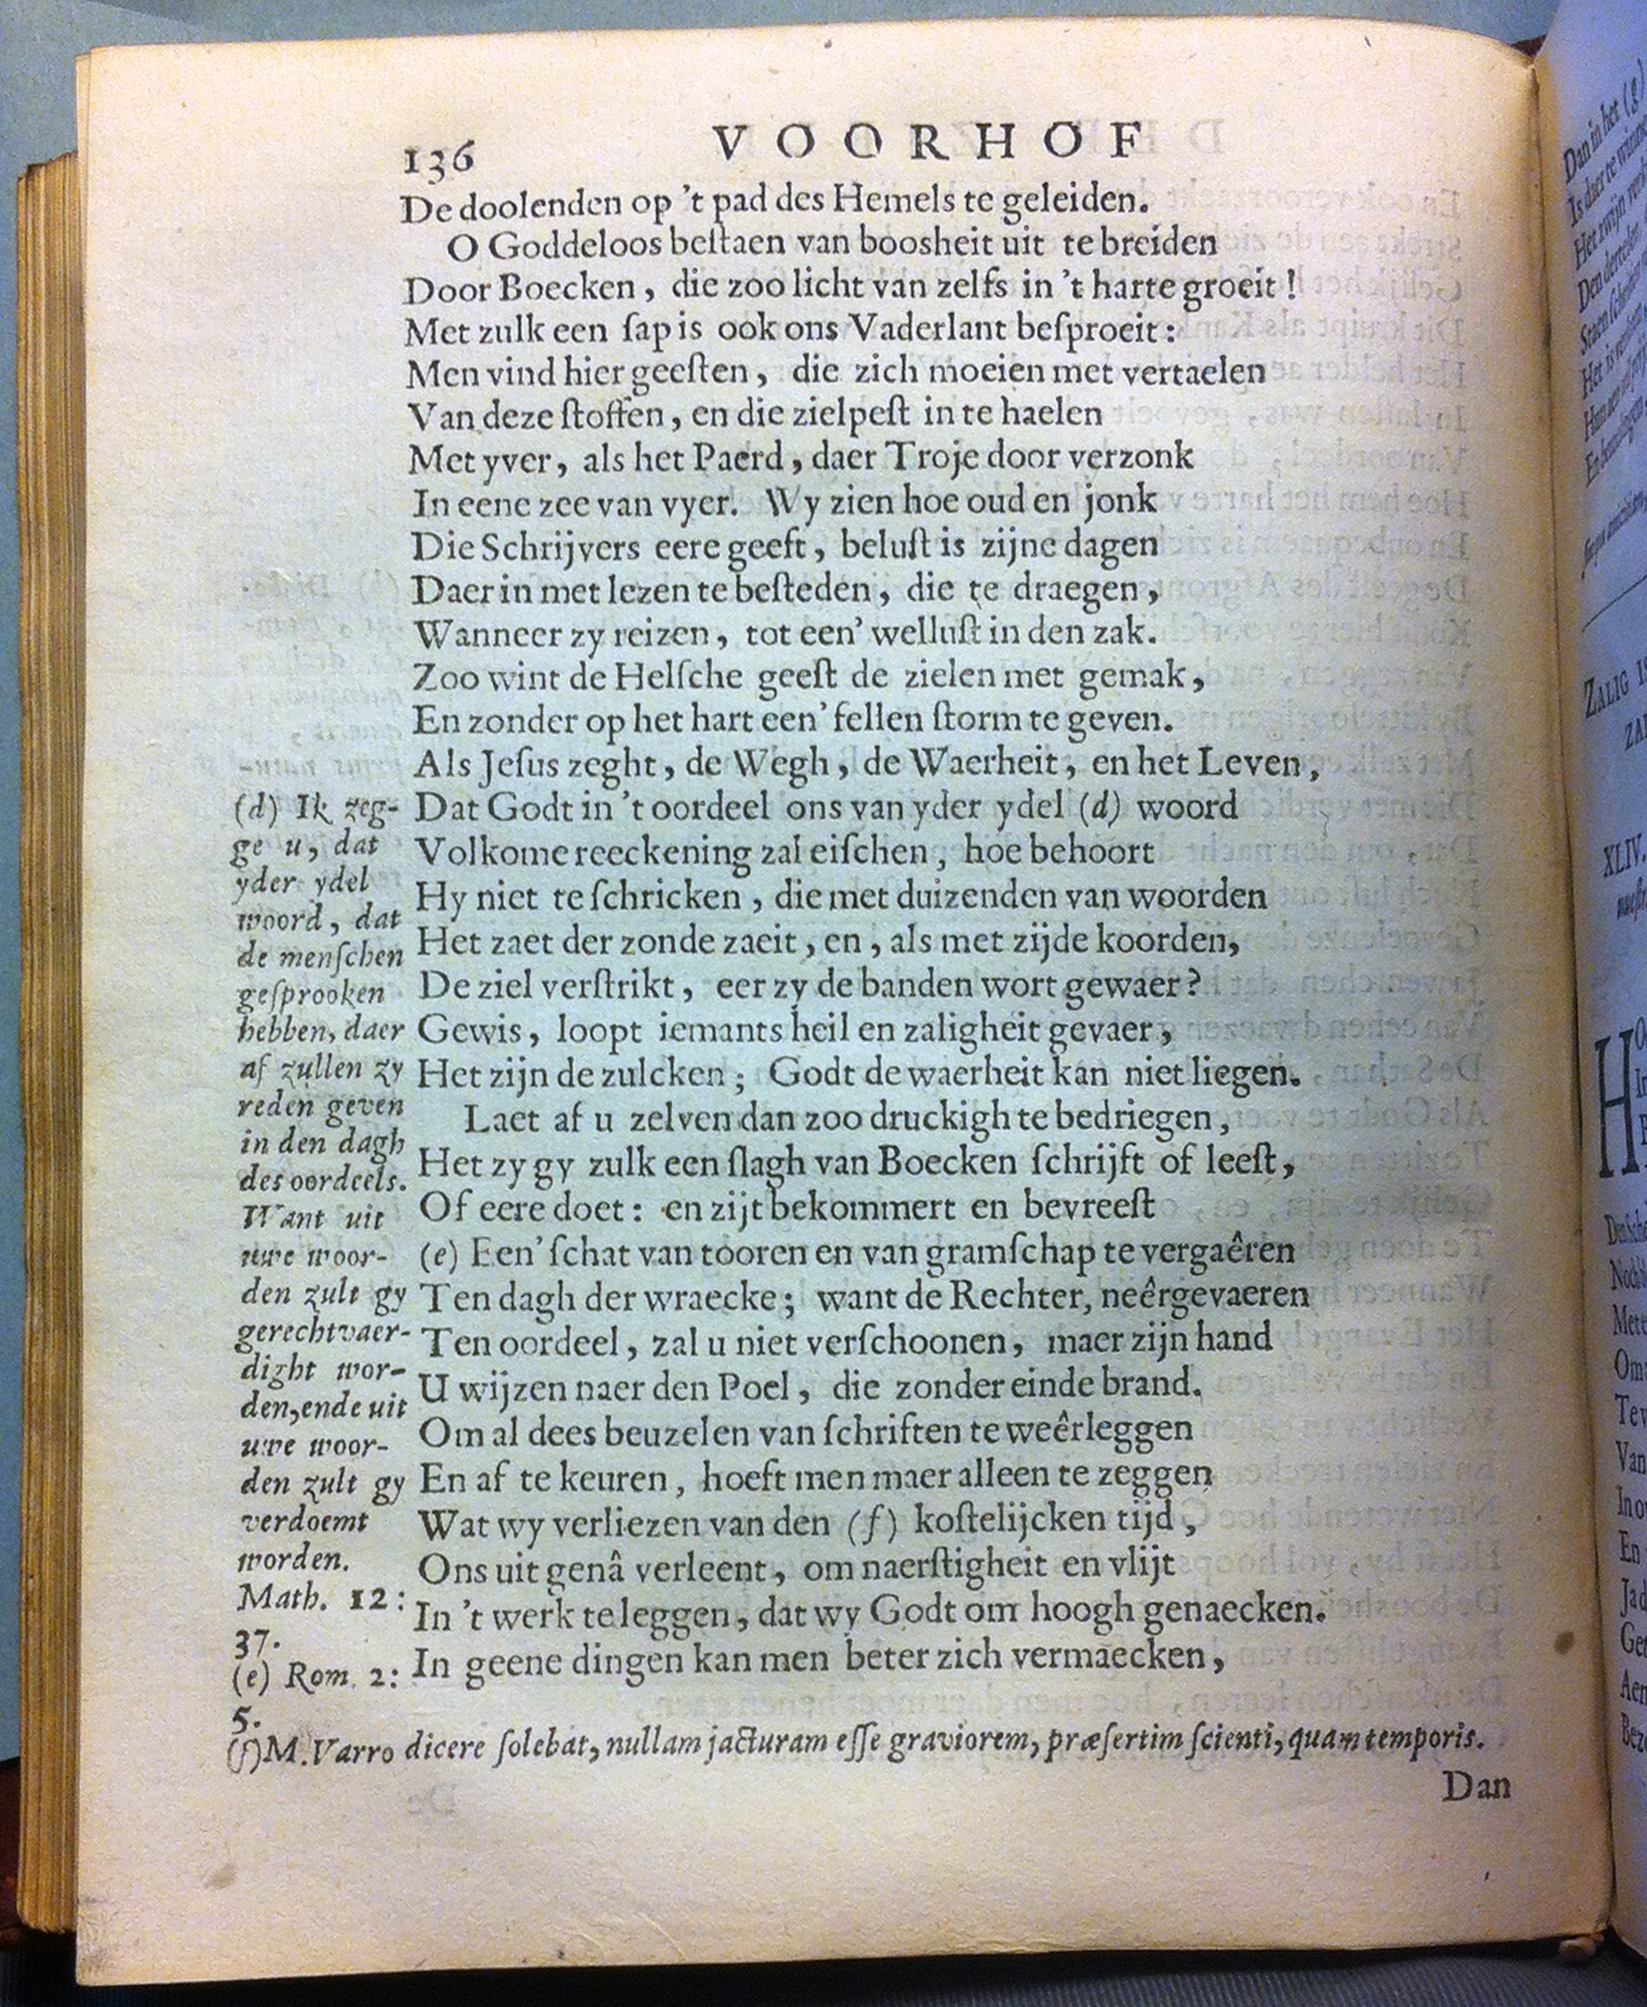 136 VOORHOF
De doolenden op 't pad des Hemels te geleiden.
O Goddeloos beſtaen van boosheit uit te breiden
Door Boecken, die zoo licht van zelfs in 't harte groeit!
Met zulk een ſap is ook ons Vaderlant beſproeit:
Men vind hier geeſten, die zich moeien met vertaelen
Van deze ſtoffen, en die zielpeſt in te haelen
Met yver, als het Paerd, daer Troje door verzonk
In eene zee van vyer. Wy zien hoe oud en jonk
Die Schrijvers eere geeft, beluſt is zijne dagen
Daer in met lezen te beſteden, die te draegen,
Wanneer zy reizen, tot een' welluſt in den zak.
Zoo wint de Helſche geeſt de zielen met gemak,
En zonder op het hart een' fellen ſtorm te geven.
Als Jeſus zeght, de Wegh, de Waerheit, en het Leven,
Dat Godt in 't oordeel ons van yder ydel (d) woord
Volkome reeckening zal eiſchen, hoe behoort
Hy niet te ſchricken, die met duizenden van woorden
Het zaet der zonde zaeit, en, als met zijde koorden,
De ziel verſtrikt, eer zy de banden wort gewaer?
Gewis, loopt iemants heil en zaligheit gevaer,
Het zijn de zulcken; Godt de waerheit kan niet liegen.
Laet af u zelven dan zoo druckigh te bedriegen,
Het zy gy zulk een ſlagh van Boecken ſchrijft of leeſt,
Of eere doet: en zijt bekommert en bevreeſt
(e) Een' ſchat van tooren en van gramſchap te vergaêren
Ten dagh der wraecke; want de Rechter, neêrgevaeren
Ten oordeel, zal u niet verſchoonen, maer zijn hand
U wijzen naer den Poel, die zonder einde brand.
Om al dees beuzelen van ſchriften te weêrleggen
En af te keuren, hoeft men maer alleen te zeggen
Wat wy verliezen van den (f) koſtelijcken tijd,
Ons uit genâ verleent, om naerſtigheit en vlijt
In 't werk te leggen, dat wy Godt om hoogh genaecken.
In geene dingen kan men beter zich vermaecken,
(d) Ik zeg-
ge u, dat
yder ydel
woord, dat
de menſchen
geſprooken
hebben, daer
af zullen zy
reden geven
in den dagh
des oordeels.
Want uit
uwe woor-
den zult gy
gerechtvaer-
dight wor-
den, ende uit
uwe woor-
den zult gy
verdoemt
worden.
Math. 12:
37.
(e) Rom. 2:
5.
(f) M. Varro dicere ſolebat, nullam jacturam eſſe graviorem, præſertim ſcienti, quam temporis.
Dan